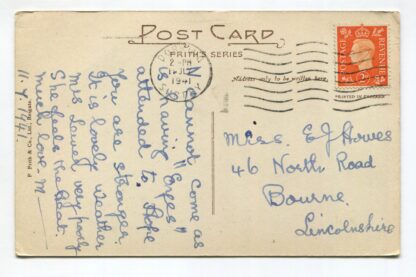 POST CARD
FRITH'S SERIES
Address only to be written here.
PRINTED IN ENGLAND
POSTAGE
REVENUE
2 - PM
1941
F. Frith & Co., Ltd., Reigate
11.7.1941.
N cannot come as
is having "Eyes"
attended to. Hope
you are stronger.
It is lovely weather
Mrs very poorly
She feels the heat.
Much love - M
Miss. E J Howes
46 North Road
Bourne.
Lincolnshire